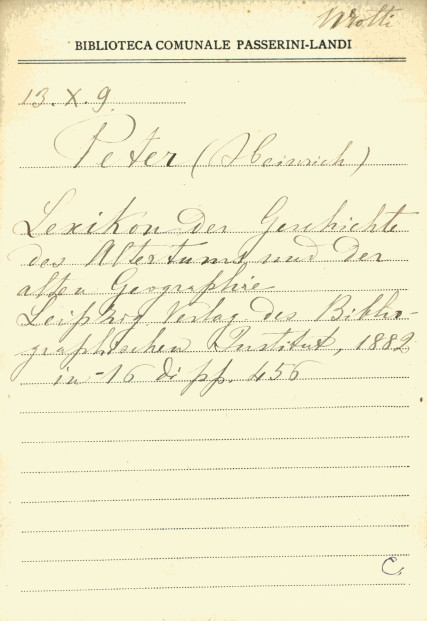 BIBLIOTECA COMUNALE PASSERINI-LANDI
13. X. 9.
Peter (Heinrich)
Lexikon der Geschichte
des Altertums und der
alten Geographie
Leipzig Verlag des Biblio-
graphischen Institut, 1882
in-16 di pp. 456
C.